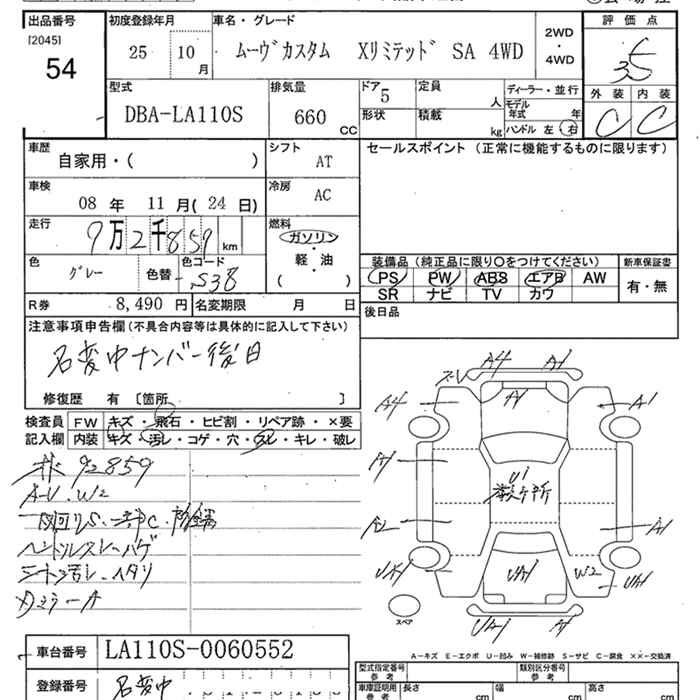 出品番号 初度登録年月 車名・グレード 2WD ・ 4WD 評価点
[2045] 54 25 10月 ムーヴカスタム Xリミテッド SA 4WD 3.5
型式 DBA-LA110S 排気量 660 CC ドア 5 形状 定員 人 積載 kg
ディーラー・並行 モデル年式 年 ハンドル 左 右
外装 C 内装 C
車歴 自家用・( ) シフト AT
セールスポイント (正常に機能するものに限ります)
車検 08年 11月(24日) 冷房 AC
走行 9万2千859 km 燃料 ガソリン・軽・油 ( )
色 グレー 色替 色コード S38
装備品 (純正品に限り○をつけてください) 新車保証書
PS PW ABS エアB AW 有・無
SR ナビ TV カワ
R券 8,490円 名変期限 月 日
後日品
注意事項申告欄 (不具合内容等は具体的に記入して下さい)
名変中ナンバー後日
修復歴 有 〔箇所 〕
検査員記入欄 FW キズ・飛石・ヒビ割・リペア跡・×要
内装 キズ・汚レ・コゲ・穴・スレ・キレ・破レ
92859
A-U.W2
ハンドルスレ・ハゲ
シート汚レ・ヘタリ
A4 A1
A4 A1 A1
A1 U1
A2 A1
UA1 UA1 W2 UA1
UA1 A1
スペア
A-キズ E-エクボ U-凹み W-補修跡 S-サビ C-腐食 ××-交換済
車台番号 LA110S-0060552
型式指定番号 参考 類別区分番号 参考
登録番号 名変中
車庫証明用 参考 長さ cm 幅 cm 高さ cm